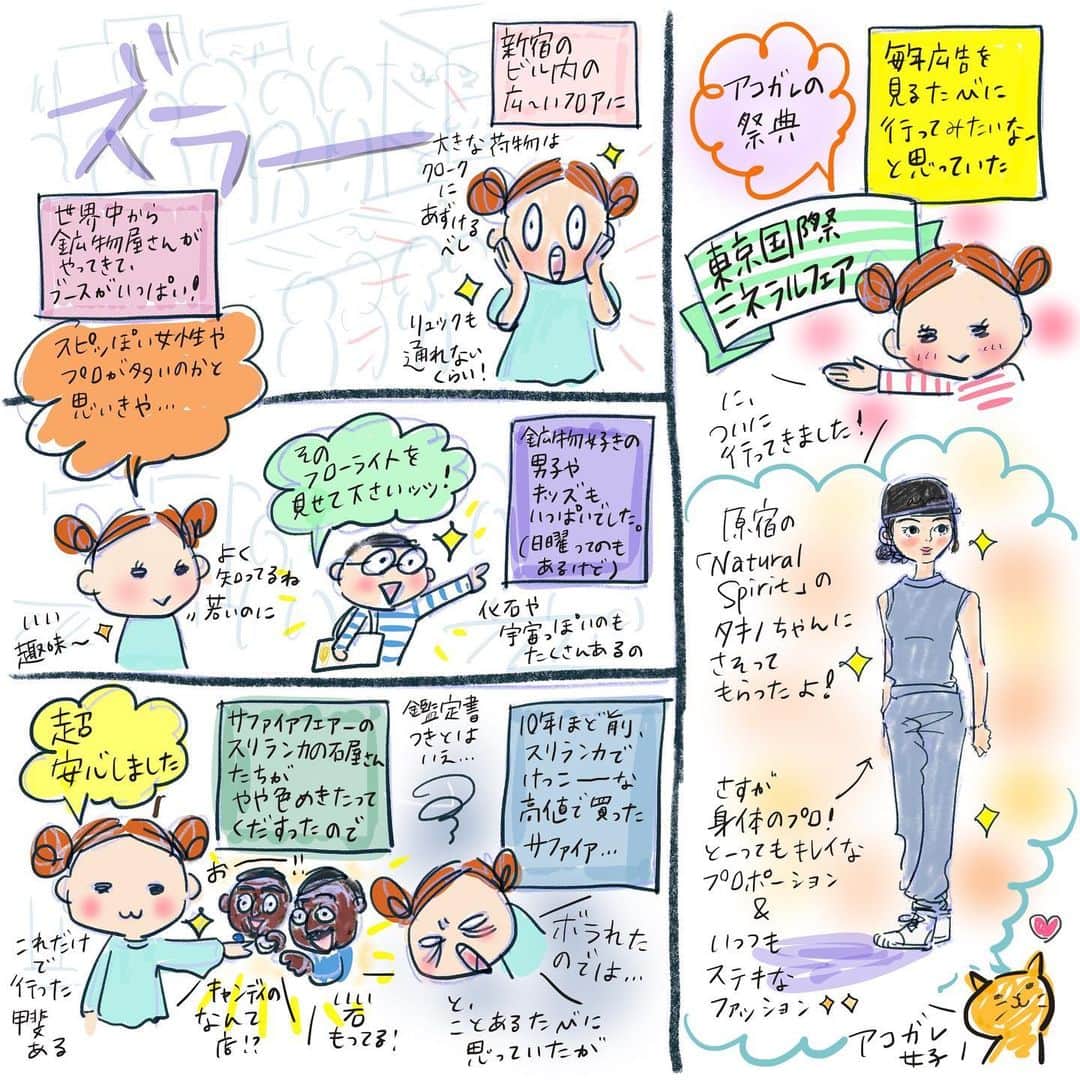 毎年広告を
見るたびに
行ってみたいなー
と思っていた
アコガレの
祭典
東京国際
ミネラルフェア
に、
ついに
行ってきました！
原宿の
「Natural
Spirit」の
タキノちゃんに
さそって
もらったよ！
さすが
身体のプロ！
とーってもキレイな
プロポーション
&
いっつも
ステキな
ファッション
アコガレ
女子
新宿の
ビル内の
広〜いフロアに
ズラー
大きな荷物は
クローク
に
あずける
べし
リュックも
通れない
くらい！
世界中から
鉱物屋さんが
やってきて、
ブースがいっぱい！
スピッぽい女性や
プロが多いのかと
思いきや…
鉱物好きの
男子や
キッズも
いっぱいでした。
(日曜ってのも
あるけど)
その
フローライトを
見せて下さいッッ！
化石や
宇宙っぽいのも
たくさんあるの
よく
知ってるね
若いのに
いい
趣味〜
10年ほど前、
スリランカで
けっこーーな
高値で買った
サファイア…
鑑定書
つきとは
いえ…
ボラれた
のでは…
と、
ことあるたびに
思っていたが
サファイアフェアーの
スリランカの石屋さん
たちが
やや色めきたって
くだすったので
お〜
いい
石
もってる！
キャンディの
なんて
店!?
超
安心しました
これだけ
で
行った
甲斐
ある